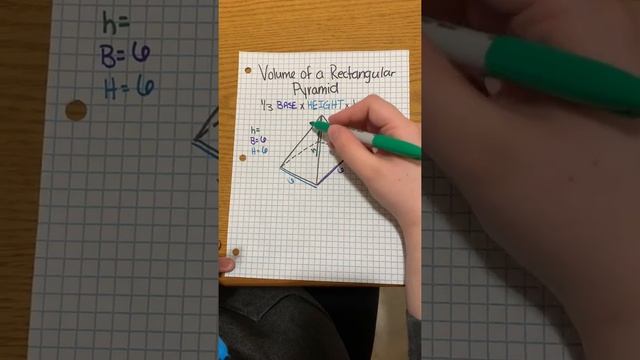 h=
B=6
H=6
Volume of a Rectangular
Pyramid
1/3 BASE x HEIGHT x
h=
B=6
H=6
h
6
6